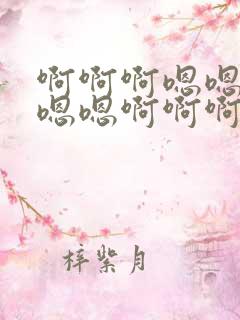 啊啊啊嗯嗯
嗯嗯啊啊啊
梓紫月